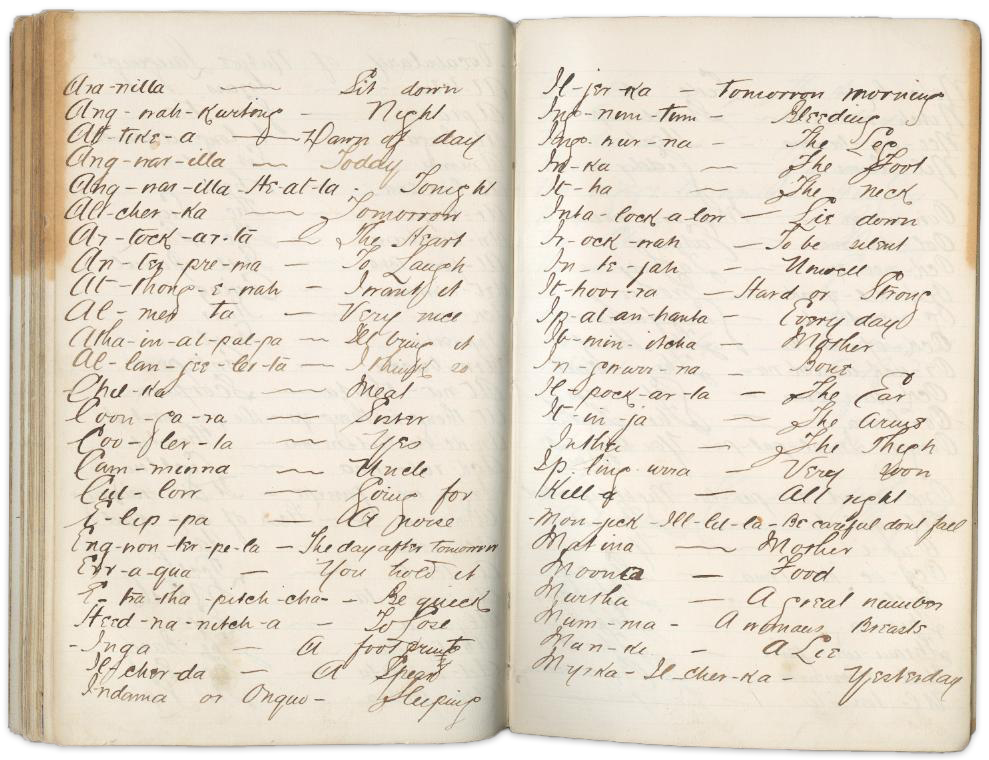 Ara-nilla — Sit down
Ang-nah-kurtong — Night
Alt-tike-a — Dawn of day
Ang-nar-illa — Today
Ang-nar-illa-He-at-ta - Tonight
Alt-cher-ka — Tomorrow
Ar-tock-ar-ta — The Heart
An-ter-pre-ma — To Laugh
At-thong-e-nah — I want it
Al-mer ta — Very nice
Atha-in-at-pal-pa — Ill bring it
Al-lan-jee-ler-ta — I think so
Chel-ka — Meat
Coon-ga-ra — Sister
Coo-gler-ta — Yes
Cam-minna — Uncle
Cul-lorr — Going for
E-lip-pa — A
Eng-non-ter-pe-la — The day after tomorrow
Err-a-qua — You hold it
E-tra-tha-pitch-cha — Be quick
Heed-na-nitch-a — To lose
- Inga — A foot prints
Il-cher-da — A Spear
Indama or Onquo - Sleeping
Il-jer-ka — tomorrow morning
Ing-num-tum — Bleeding
Ing-nur-na — The Leg
In-ka — The Foot
It-ha — The neck
Inta-lock-a-lorr — Lie down
Ir-ock-nah — To be silent
In-te-jah — Unwell
It-hoor-ra — Hard or Strong
Ip-al-an-hanta — Every day
Ib-min-itcha — Mother
In-gnurr-na — Bone
Il-pock-ar-ta — The Ear
It-in-ja — The arms
Inthu — The Thigh
Ip-ling-wora — Very soon
Kill-a — All right
-Mon-pick-Ill-lil-la - Be careful dont fall
Matina — Mother
Moonta — Food
Murtha — A great number
Mum-ma - A womans Breasts
Mun-di — A Lie
Myrka-Il-cher-ka - Yesterday